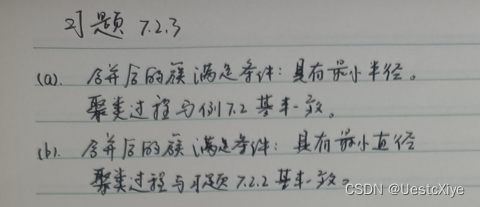 习题 7.2.3
(a). 合并后的簇满足条件：具有最小半径。
聚类过程与例7.2基本一致。
(b). 合并后的簇满足条件：具有最小直径
聚类过程与习题7.2.2基本一致。
CSDN @UestcXiye